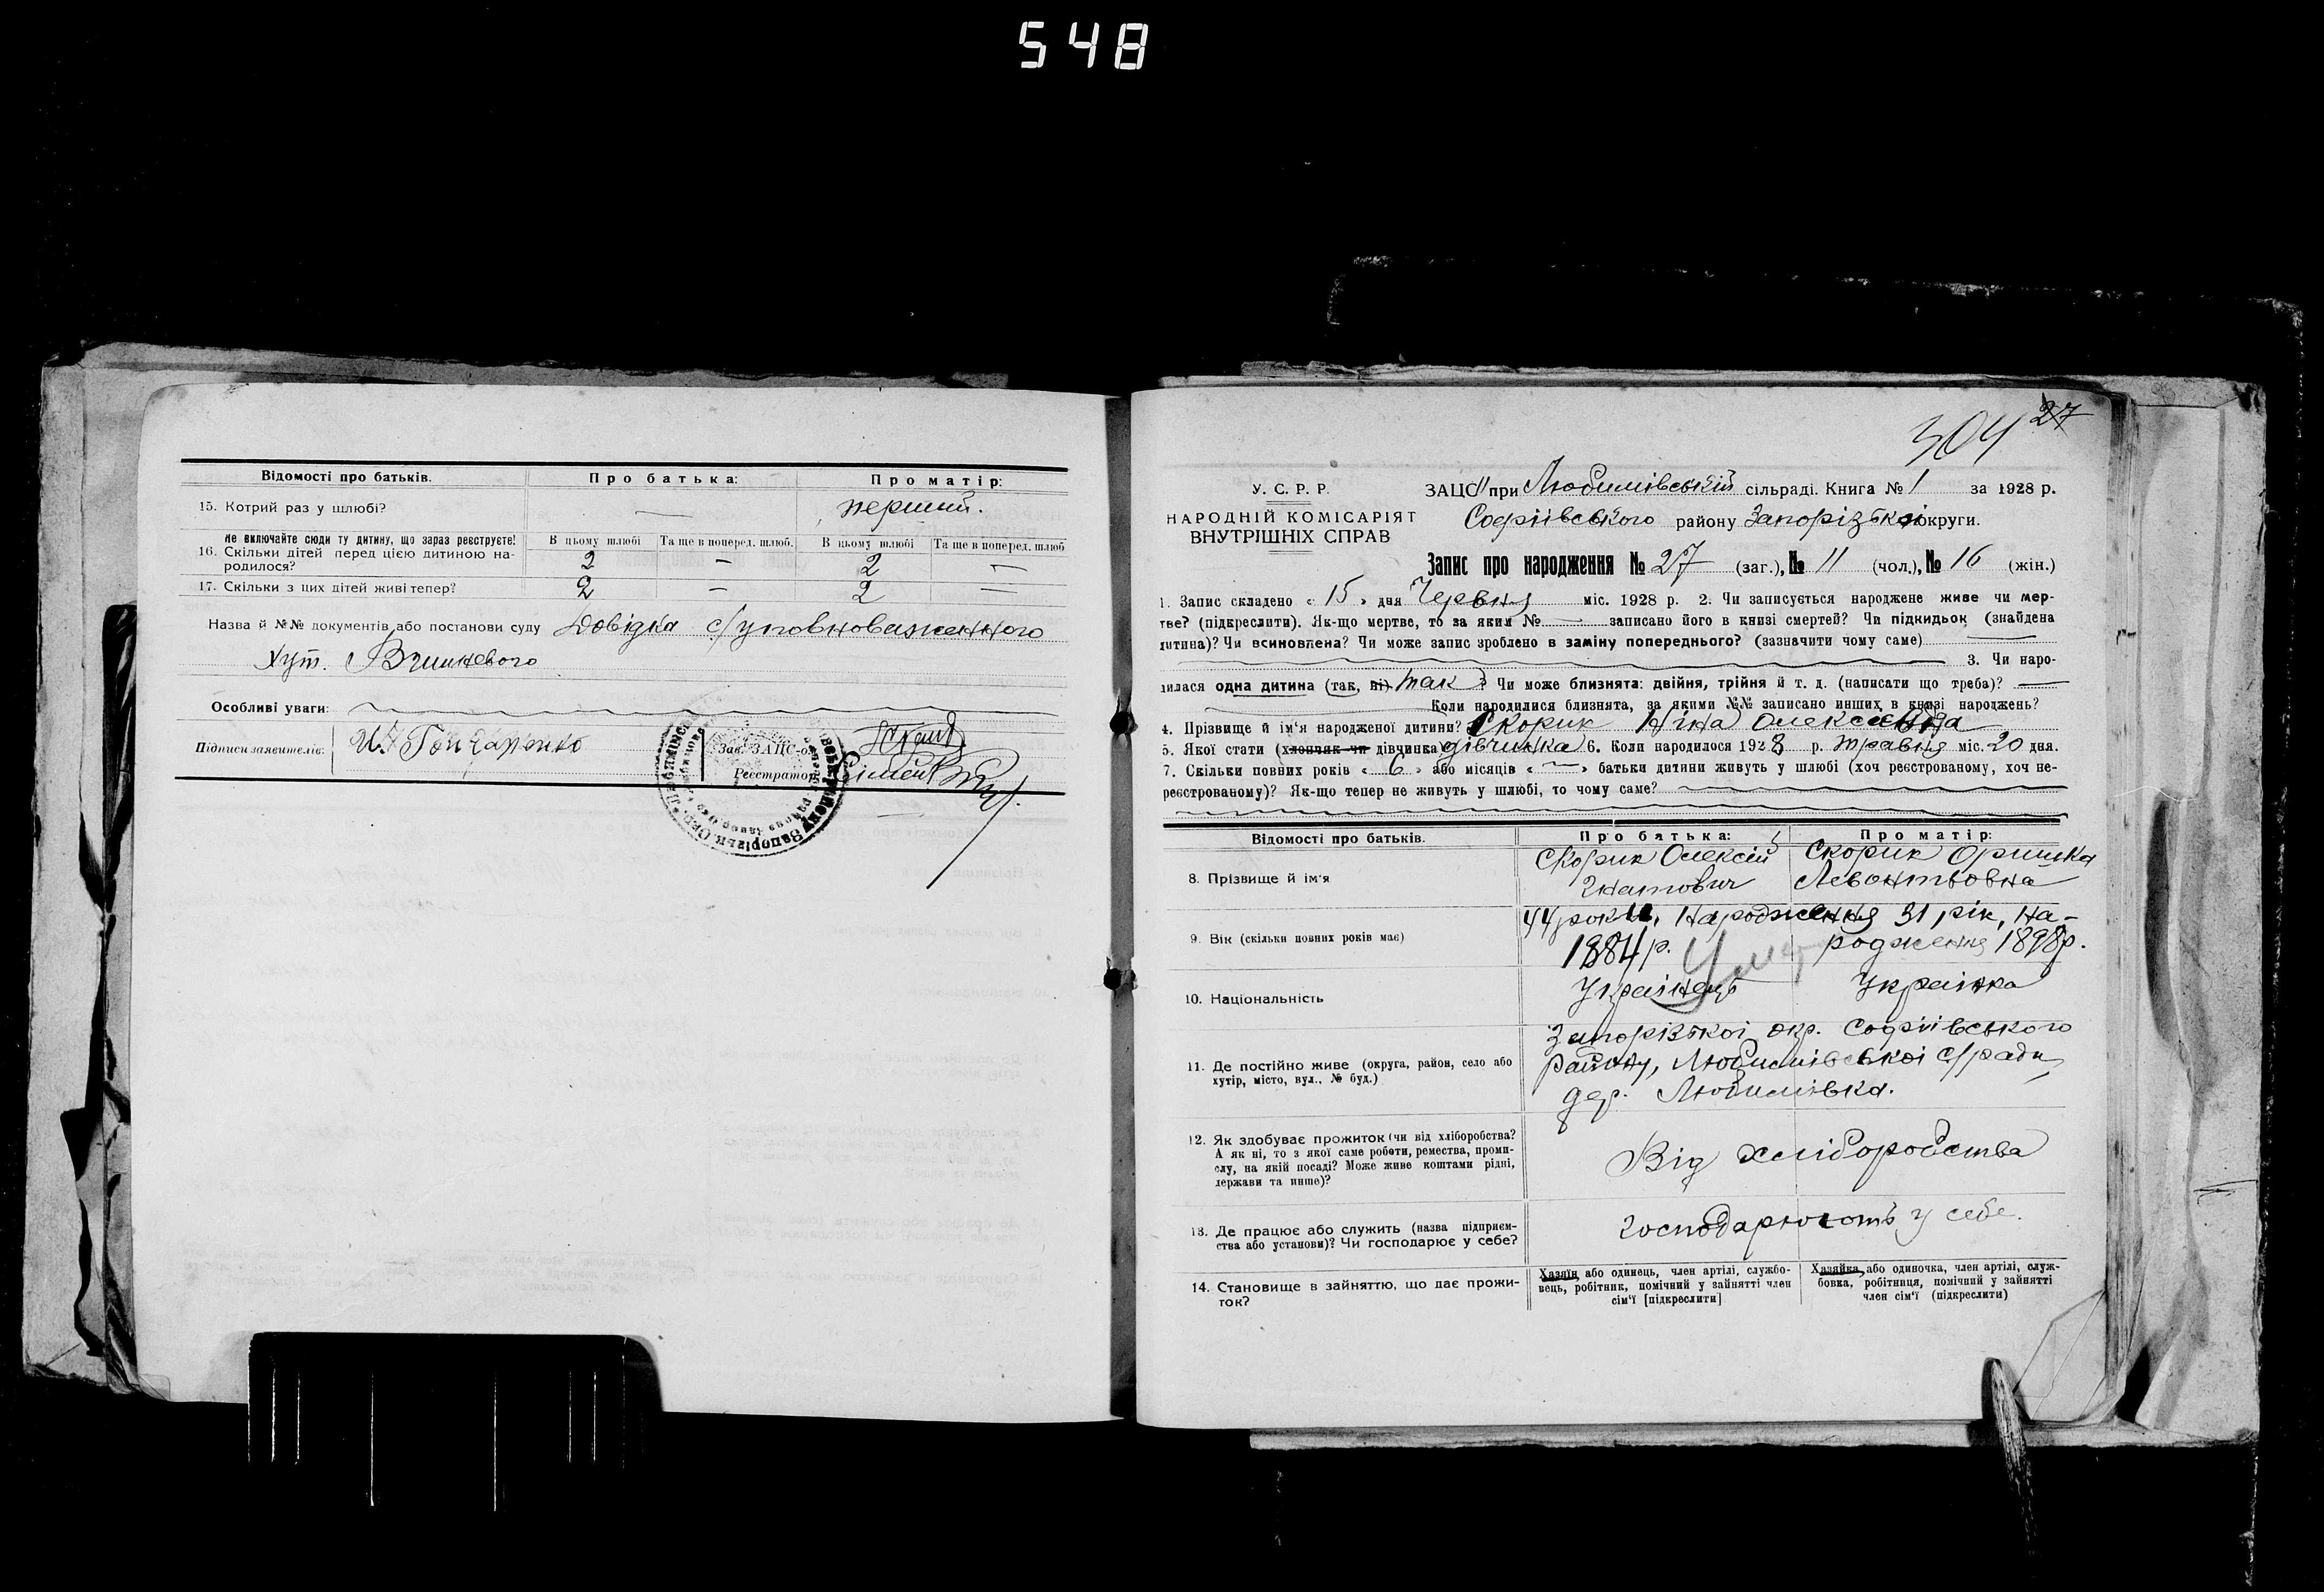 548
Відомості про батьків. Про батька: Про матір:
15. Котрий раз у шлюбі? — перший.
Не включайте сюди ту дитину, що зараз реєструєте!
16. Скільки дітей перед цією дитиною народилося?
В цьому шлюбі Та ще в поперед. шлюб. В цьому шлюбі Та ще в поперед. шлюб
2 — 2 —
17. Скільки з цих дітей живі тепер? 2 — 2 —
Назва й №№ документів або постанови суду Довідка с/уповноваженного
Хут. Вишневого
Особливі уваги:
Підписи заявителів: Гончаренко Зав. ЗАПС-ом
Реєстратор
304 27
У. С. Р. Р.
НАРОДНІЙ КОМІСАРІЯТ
ВНУТРІШНІХ СПРАВ
ЗАЦС при Любимівській сільраді. Книга № 1 за 1928 р.
Софіївського району Запорізької округи.
Запис про народження № 27 (заг.), № 11 (чол.), № 16 (жін.)
1. Запис складено «15» дня Червня міс. 1928 р. 2. Чи записується народжене живе чи мер-
тве? (підкреслити). Як-що мертве, то за яким № — записано його в книзі смертей? Чи підкидьок (знайдена
дитина)? Чи всиновлена? Чи може запис зроблено в заміну попереднього? (зазначити чому саме)
3. Чи наро-
дилася одна дитина (так, ні) так? Чи може близнята: двійня, трійня й т. д. (написати що треба)? —
Коли народилися близнята, за якими №№ записано инших в книзі народжень?
4. Прізвище й ім'я народженої дитини? Скорик Ніна Олексієвна
5. Якої стати (хлопчик чи дівчинка) дівчинка 6. Коли народилося 1928 р. травня міс. 20 дня.
7. Скільки повних років «6» або місяців «—» батьки дитини живуть у шлюбі (хоч реєстрованому, хоч не-
реєстрованому)? Як-що тепер не живуть у шлюбі, то чому саме?
Відомості про батьків. Про батька: Про матір:
8. Прізвище й ім'я
Скорик Олексій Скорик Оришка
Гнатович Левонтьовна
9. Вік (скільки повних років має)
44 роки, народження 31 рік, на-
1884 р. родження 1898 р.
10. Національність Українець Українка
11. Де постійно живе (округа, район, село або
хутір, місто, вул., № буд.)
Запорізької окр. Софіївського
Району, Любимівської с/ради
дер. Любимівка.
12. Як здобуває прожиток (чи від хліборобства?
А як ні, то з якої саме роботи, ремества, проми-
слу, на якій посаді? Може живе коштами рідні,
держави та инше)?
Від хліборобства
13. Де працює або служить (назва підприєм-
ства або установи)? Чи господарює у себе?
господарюють у себе.
14. Становище в зайняттю, що дає прожи-
ток?
Хазяїн, або одинець, член артілі, службо-
вець, робітник, помічний у зайнятті член
сім'ї [підкреслити]
Хазяйка, або одиночка, член артілі, служ-
бовка, робітниця, помічний у зайнятті
член сім'ї (підкреслити)